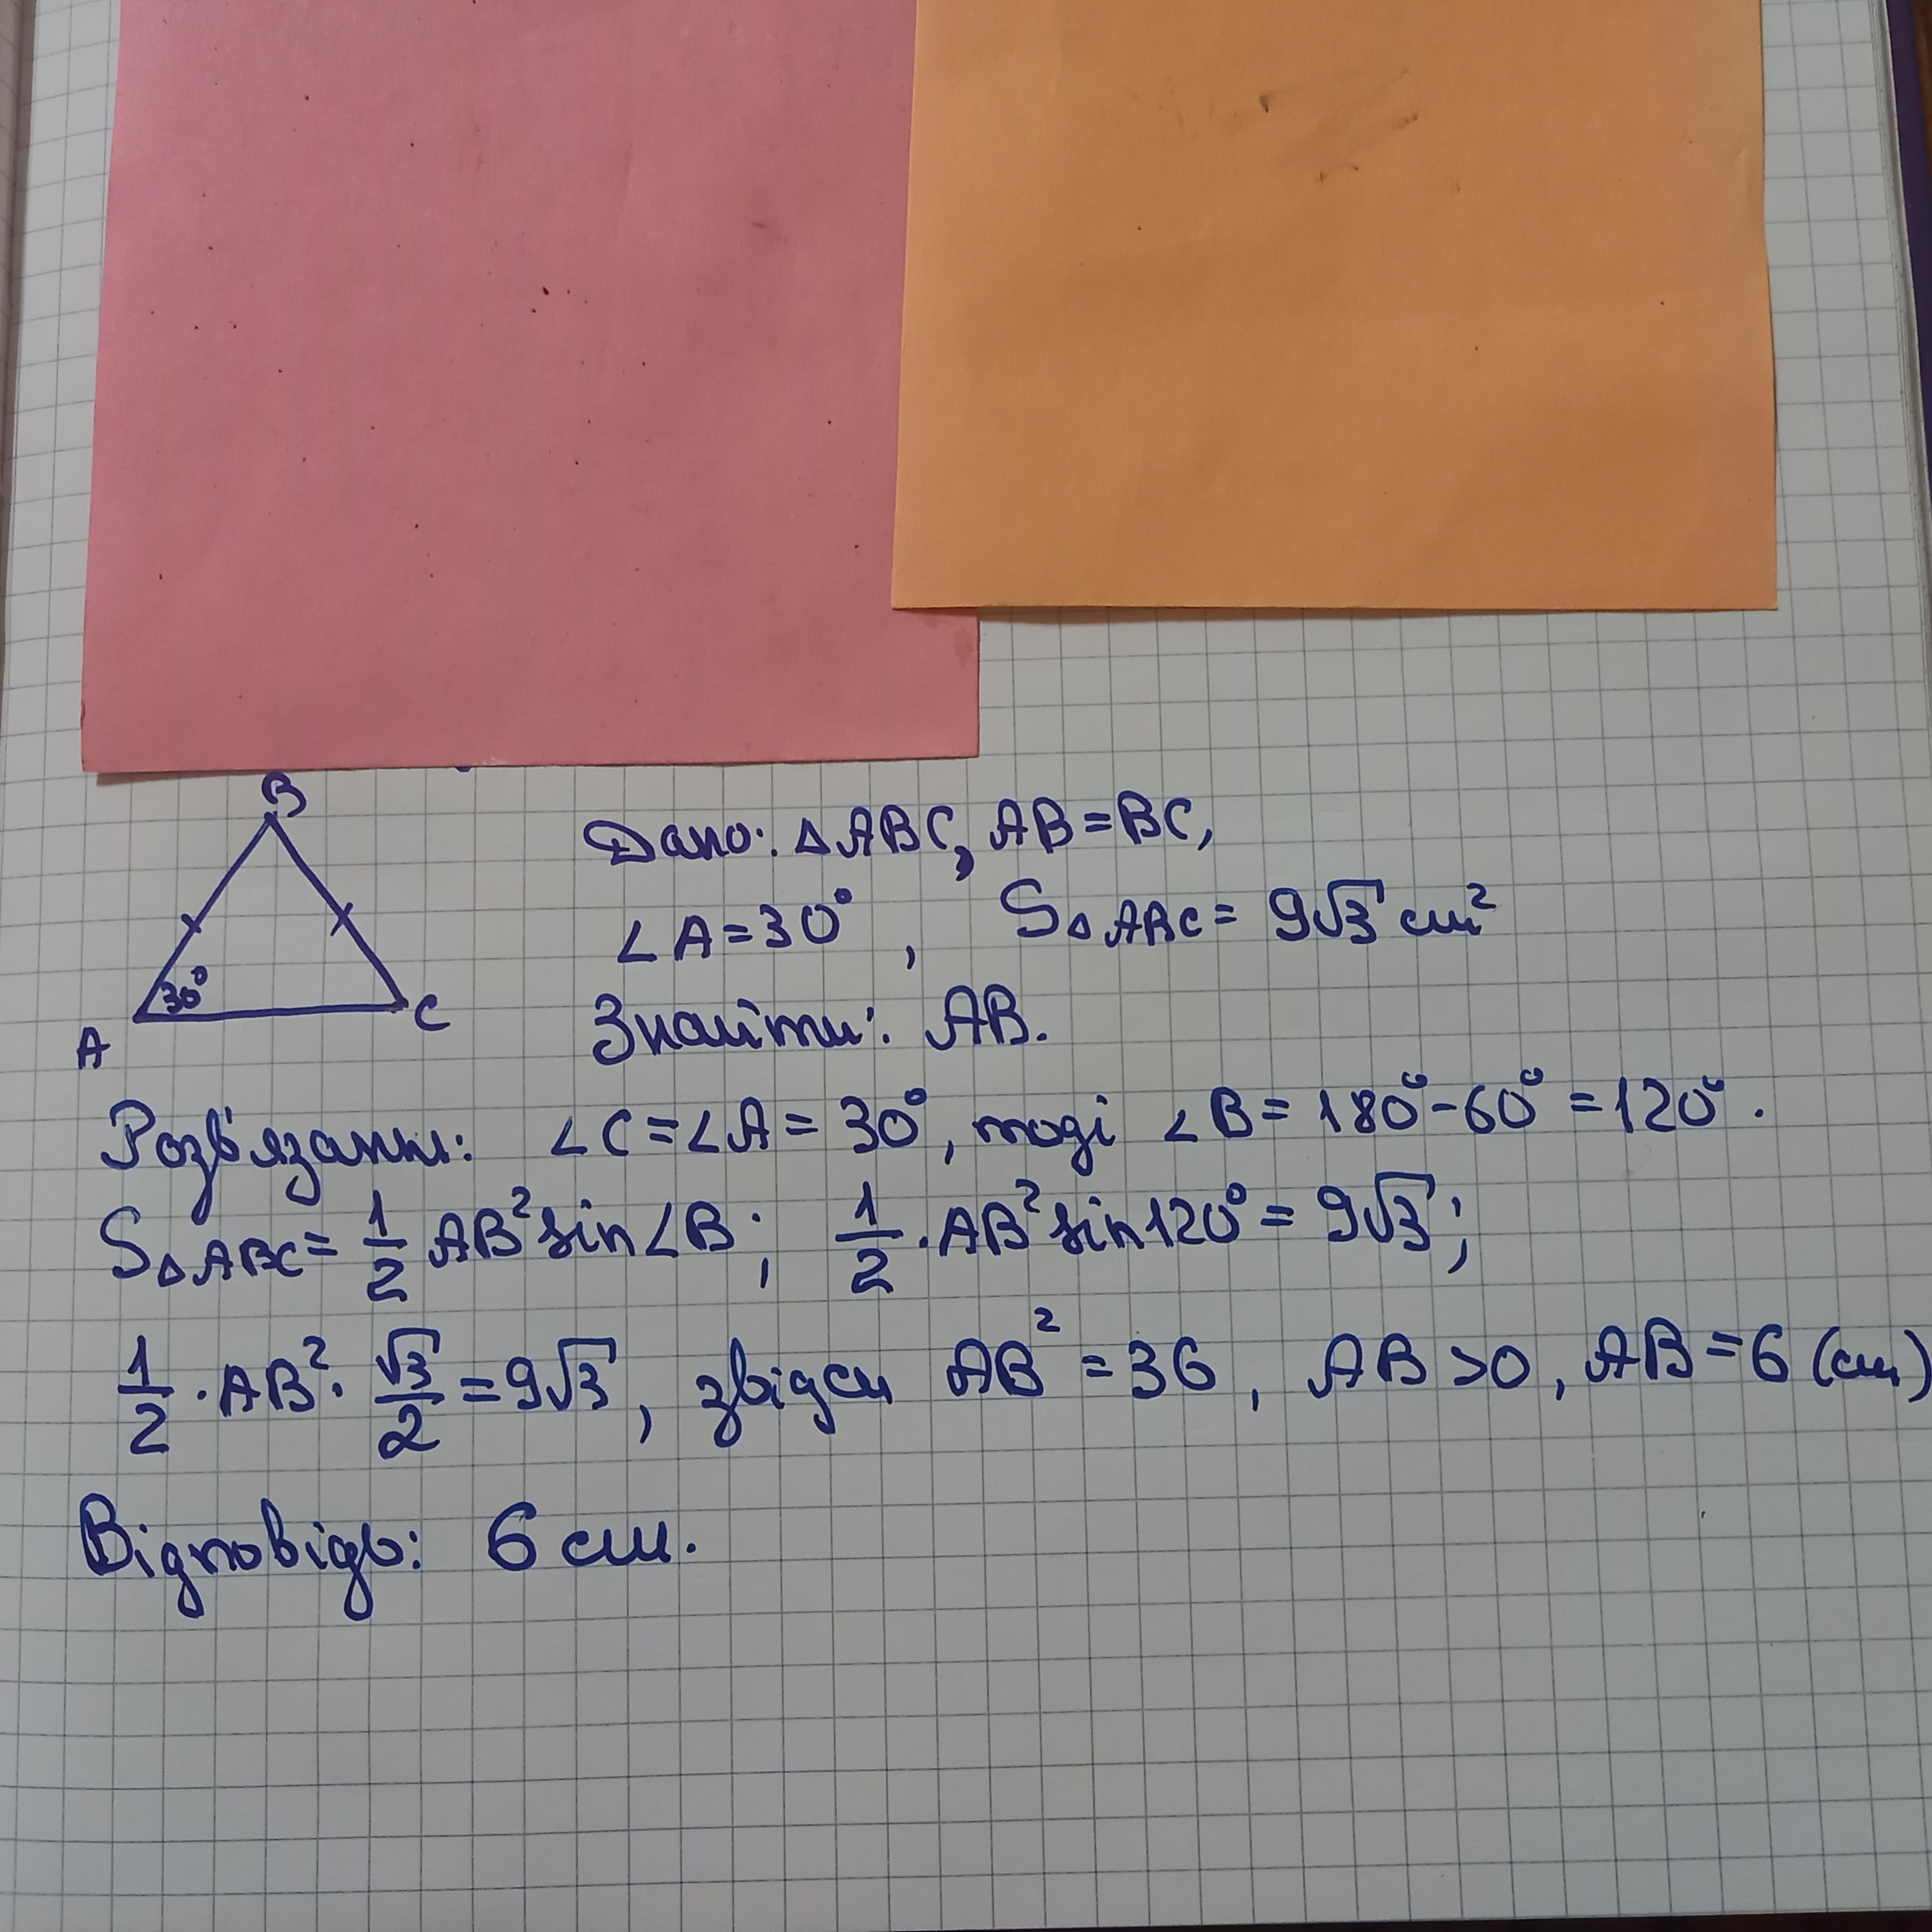 B
Дано: △ABC, AB=BC,
∠A=30°, S△ABC= 9√3 см²
30°
A
C
Знайти: AB.
Розв'язання: ∠C=∠A=30°, тоді ∠B=180°-60°=120°.
S△ABC= 1/2 AB² sin∠B; 1/2 · AB² sin120°=9√3;
1/2 · AB² · √3/2 = 9√3, звідси AB² = 36, AB>0, AB=6 (см)
Відповідь: 6 см.